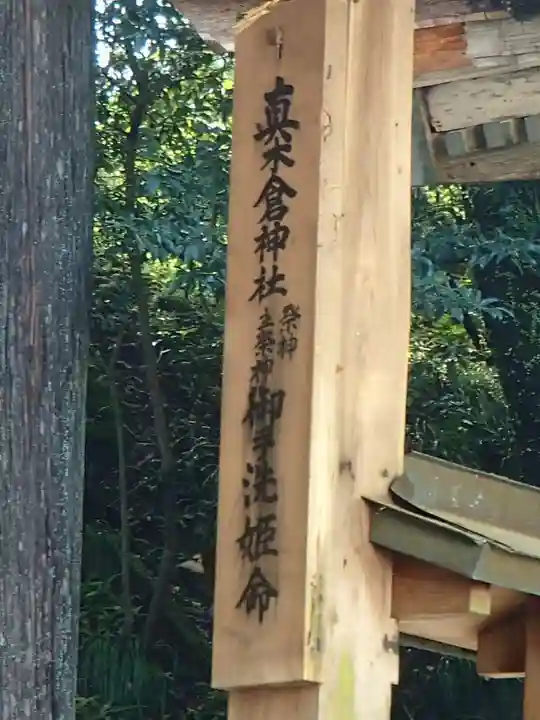 真木倉神社
祭神
主祭神
御手洗姫命